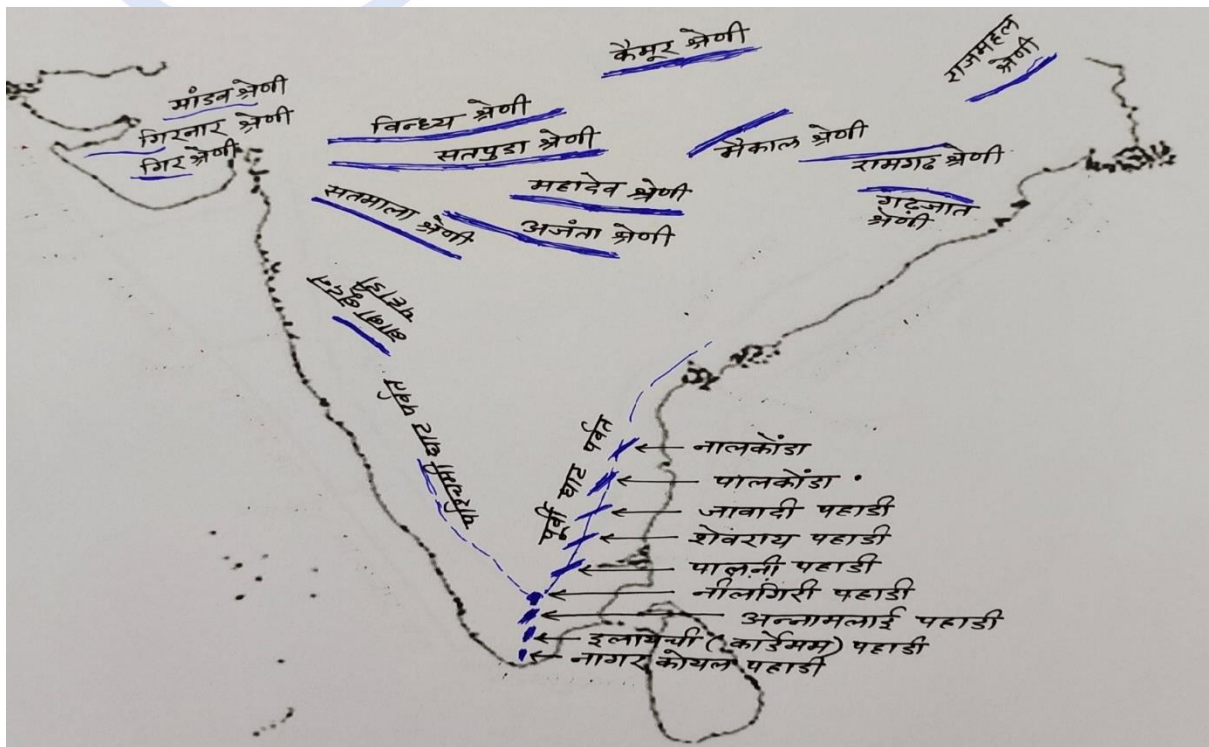 कैमूर श्रेणी
राजमहल
श्रेणी
मांडव श्रेणी
गिरनार श्रेणी
गिर श्रेणी
विन्ध्य श्रेणी
सतपुडा श्रेणी
मैकाल श्रेणी
रामगढ श्रेणी
गढ़जात
श्रेणी
महादेव श्रेणी
सतमाला श्रेणी
अजंता श्रेणी
बाबा बुदन
पहाडी
पश्चिमी घाट पर्वत
पूर्वी घाट पर्वत
नालकोंडा
पालकोंडा
जावादी पहाडी
शेवराय पहाडी
पालनी पहाडी
नीलगिरी पहाडी
अन्नामलाई पहाडी
इलायची (कार्डेमम) पहाडी
नागर कोयल पहाडी